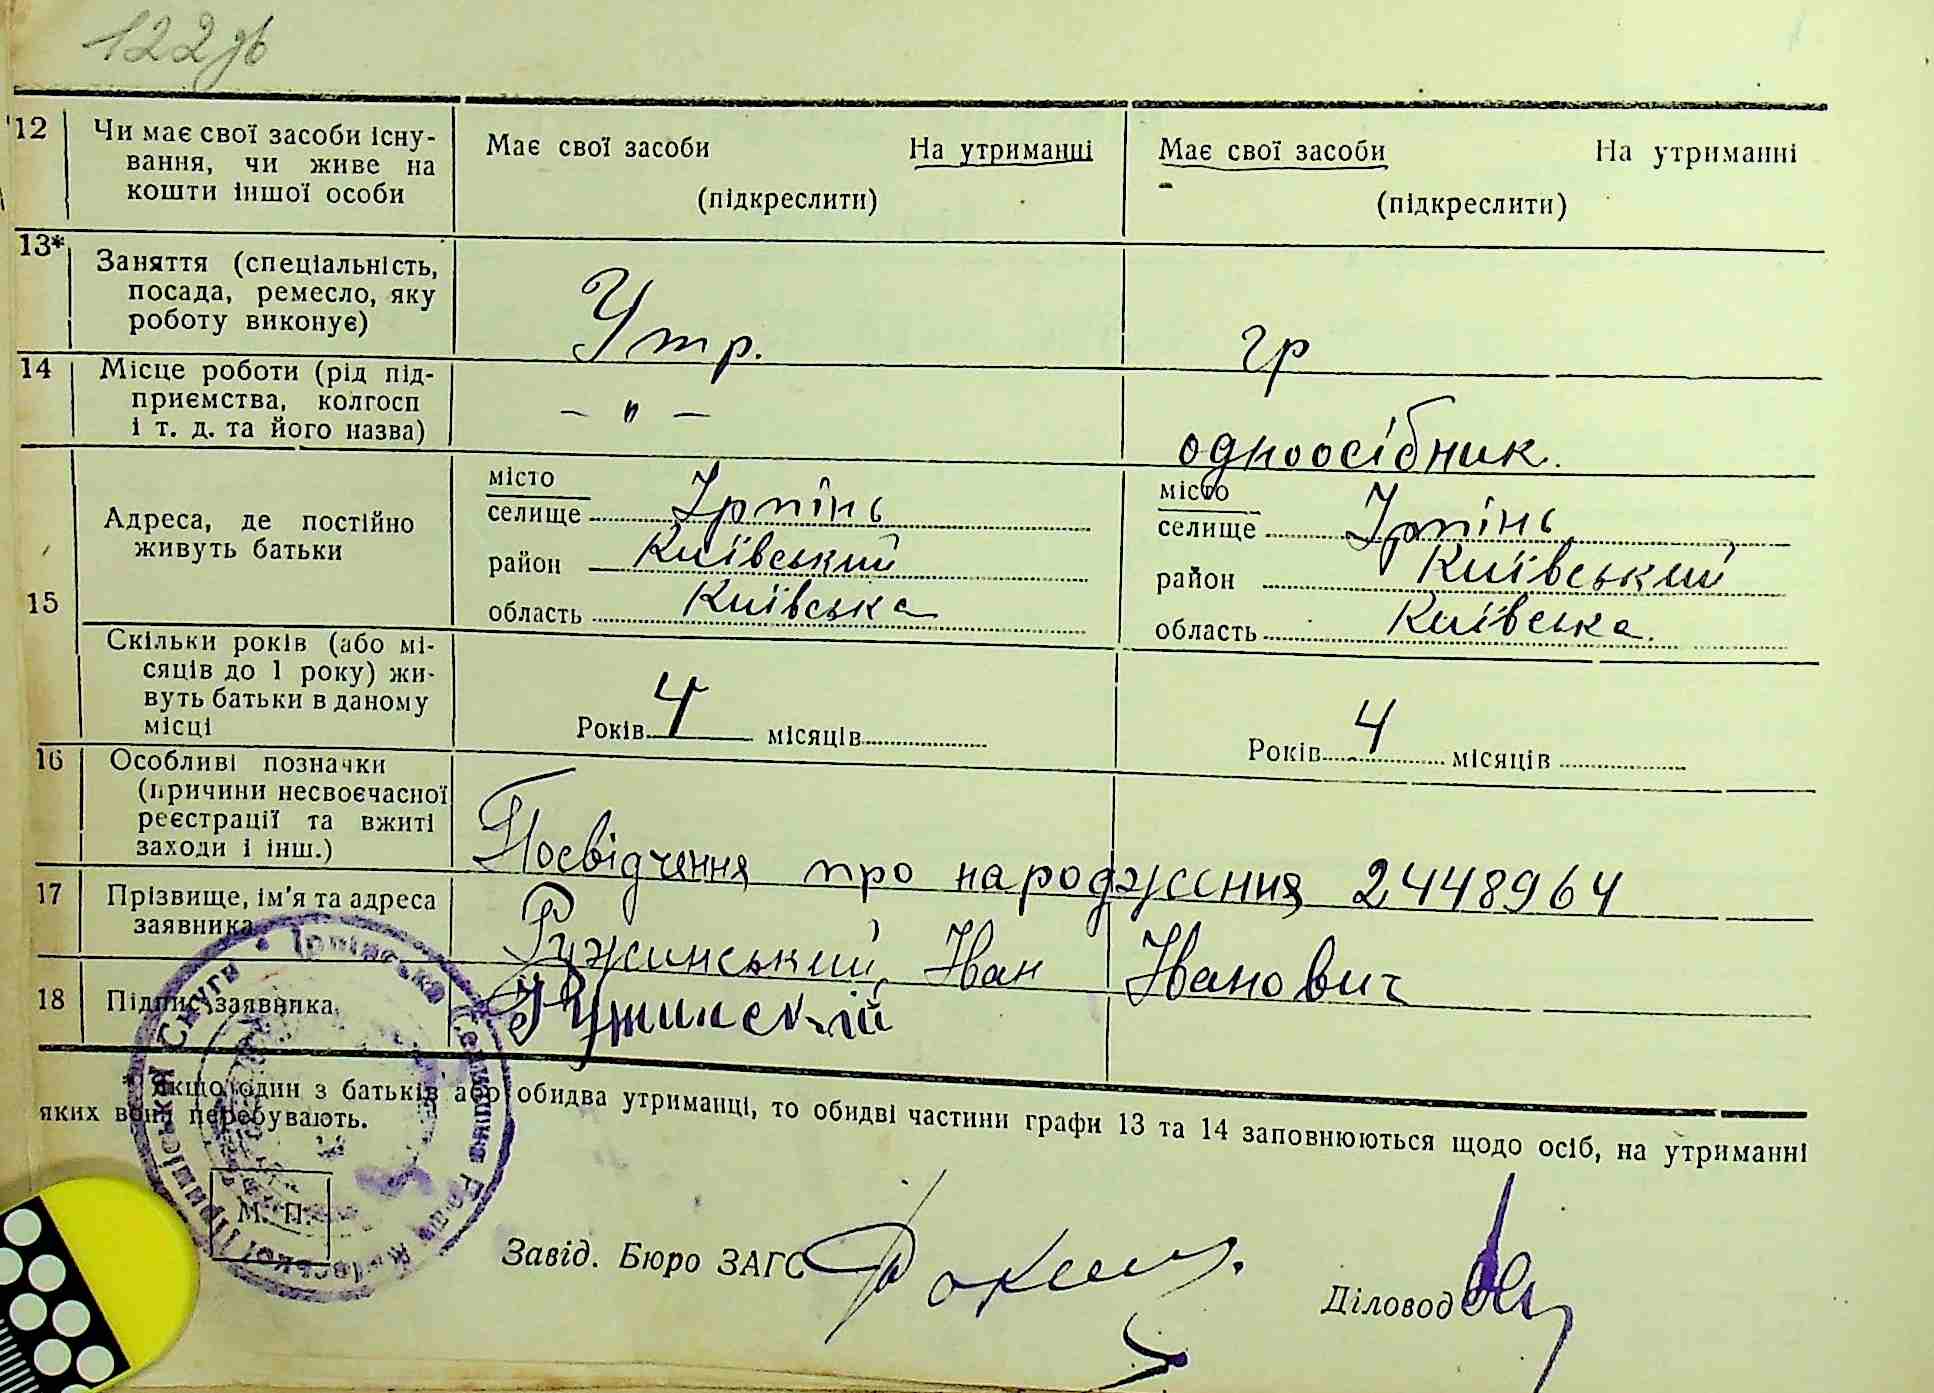 122зв
12 Чи має свої засоби існу-
вання, чи живе на
кошти іншої особи
Має свої засоби На утриманні
(підкреслити)
Має свої засоби На утриманні
(підкреслити)
13* Заняття (спеціальність,
посада, ремесло, яку
роботу виконує)
Утр.
гр
14 Місце роботи (рід під-
приємства, колгосп
і т. д. та його назва)
— " —
одноосібник.
15 Адреса, де постійно
живуть батьки
місто
селище Ірпінь
район Київський
область Київська
місто
селище Ірпінь
район Київський
область Київська.
Скільки років (або мі-
сяців до 1 року) жи-
вуть батьки в даному
місці
Років 4 місяців
Років 4 місяців
16 Особливі позначки
(причини несвоєчасної
реєстрації та вжиті
заходи і інш.)
Посвідчення про народження 2448964
17 Прізвище, ім'я та адреса
заявника
Ружинський Іван Іванович
18 Підпис заявника
Ружинскій
* Якщо один з батьків або обидва утриманці, то обидві частини графи 13 та 14 заповнюються щодо осіб, на утриманні
яких вони перебувають.
М. П.
Завід. Бюро ЗАГС
Діловод